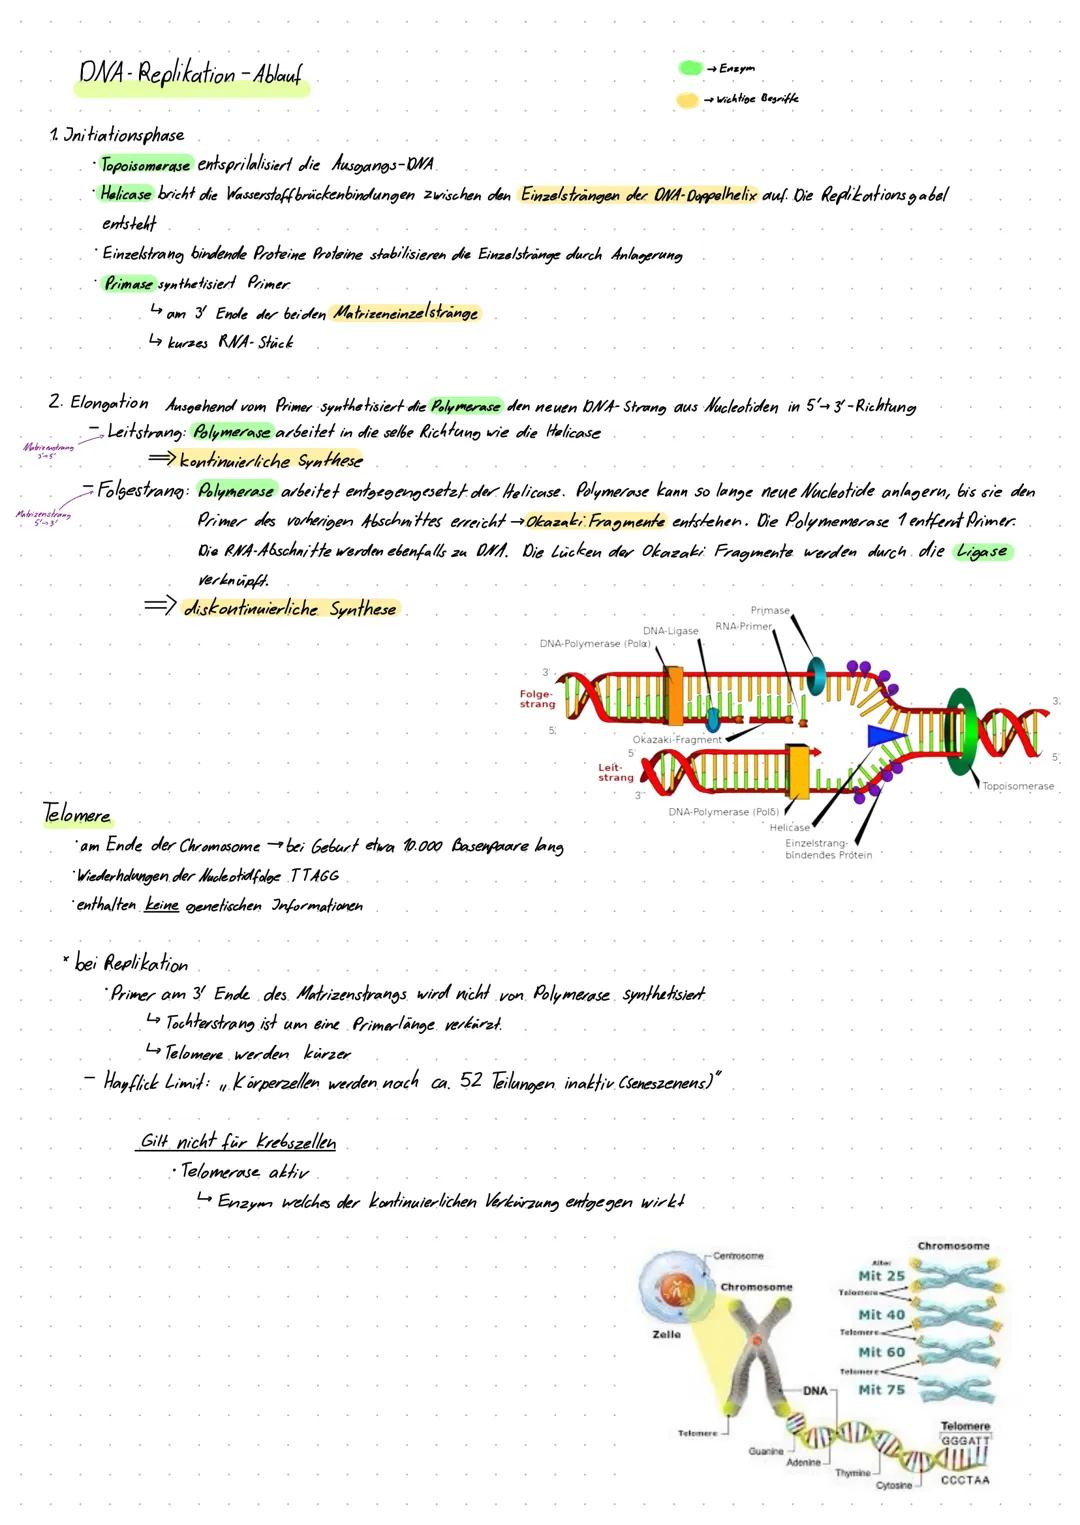 DNA-Replikation-Ablauf
→ Enzym
→ Wichtige Begriffe
1. Initiationsphase
· Topoisomerase entsprilalisiert die Ausgangs-DNA
· Helicase bricht die Wasserstoffbrückenbindungen zwischen den Einzelsträngen der DNA-Doppelhelix auf. Die Replikationsgabel
entsteht
· Einzelstrang bindende Proteine Proteine stabilisieren die Einzelstränge durch Anlagerung
· Primase synthetisiert Primer
↳ am 3' Ende der beiden Matrizeneinzelstränge
↳ kurzes RNA-Stück
2. Elongation Ausgehend vom Primer synthetisiert die Polymerase den neuen DNA-Strang aus Nucleotiden in 5'→3'-Richtung
– Leitstrang: Polymerase arbeitet in die selbe Richtung wie die Helicase
Matrizenstrang
3'→5'
⇒ kontinuierliche Synthese
– Folgestrang: Polymerase arbeitet entgegengesetzt der Helicase. Polymerase kann so lange neue Nucleotide anlagern, bis sie den
Matrizenstrang
5'→3'
Primer des vorherigen Abschnittes erreicht → Okazaki Fragmente entstehen. Die Polymemerase 1 entfernt Primer.
Die RNA-Abschnitte werden ebenfalls zu DNA. Die Lücken der Okazaki Fragmente werden durch die Ligase
verknüpft.
⇒ diskontinuierliche Synthese
Primase
DNA-Ligase
RNA-Primer
DNA-Polymerase (Polα)
3'
Folge-
strang
5'
3'
Okazaki-Fragment
5'
Leit-
strang
3'
5'
Topoisomerase
DNA-Polymerase (Polδ)
Helicase
Einzelstrang-
bindendes Protein
Telomere
· am Ende der Chromosome → bei Geburt etwa 10.000 Basenpaare lang
· Wiederholungen der Nucleotidfolge TTAGG
· enthalten keine genetischen Informationen
* bei Replikation
· Primer am 3' Ende des Matrizenstrangs wird nicht von Polymerase synthetisiert
↳ Tochterstrang ist um eine Primerlänge verkürzt.
↳ Telomere werden kürzer
– Hayflick Limit: „Körperzellen werden nach ca. 52 Teilungen inaktiv (seneszenens)"
Gilt nicht für Krebszellen
· Telomerase aktiv
↳ Enzym welches der kontinuierlichen Verkürzung entgegen wirkt
Centrosome
Chromosome
Zelle
Telomere
DNA
Guanine
Adenine
Thymine
Cytosine
Telomere
GGGATT
CCCTAA
Chromosome
Alter
Mit 25
Telomere
Mit 40
Telomere
Mit 60
Telomere
Mit 75